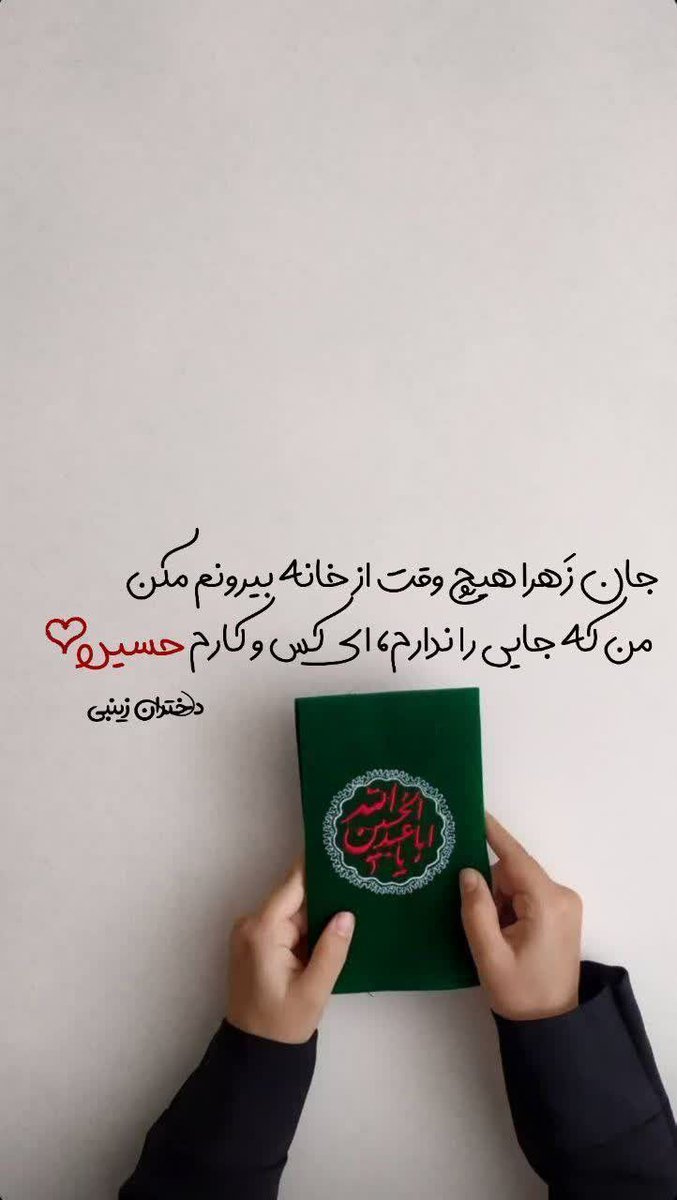 جان زَهرا هیچ وقت از خانه بیرونم مکن
من که جایی را ندارم، ای کس و کارم حسین
دختران زینبی
یا اباعبدالله الحسین